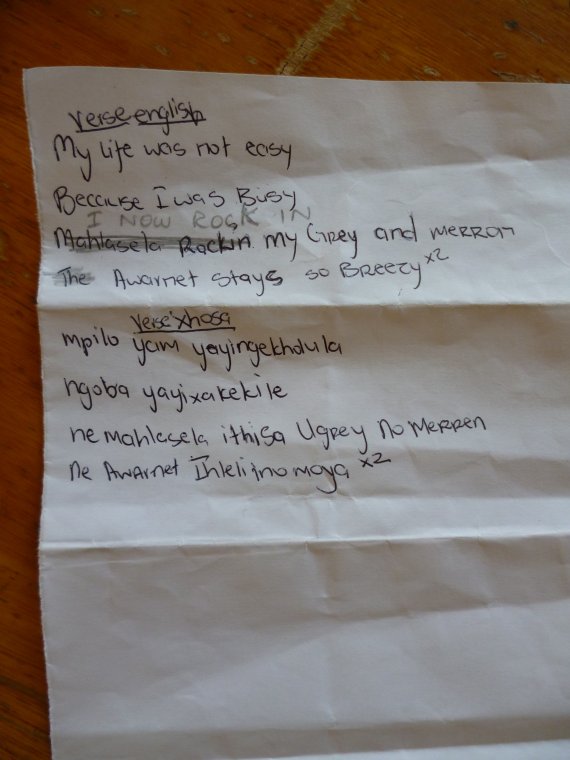 verse english
My life was not easy
Because I was Busy
I NOW ROCK IN
Mahlasela Rockin my Grey and merron
The Awarnet stays so Breezy x2
verse xhosa
mpilo yam yayingekholula
ngoba yayixakekile
ne mahlasela ithisa Ugrey no Merren
ne Awarnet Ihleli ino moya x2